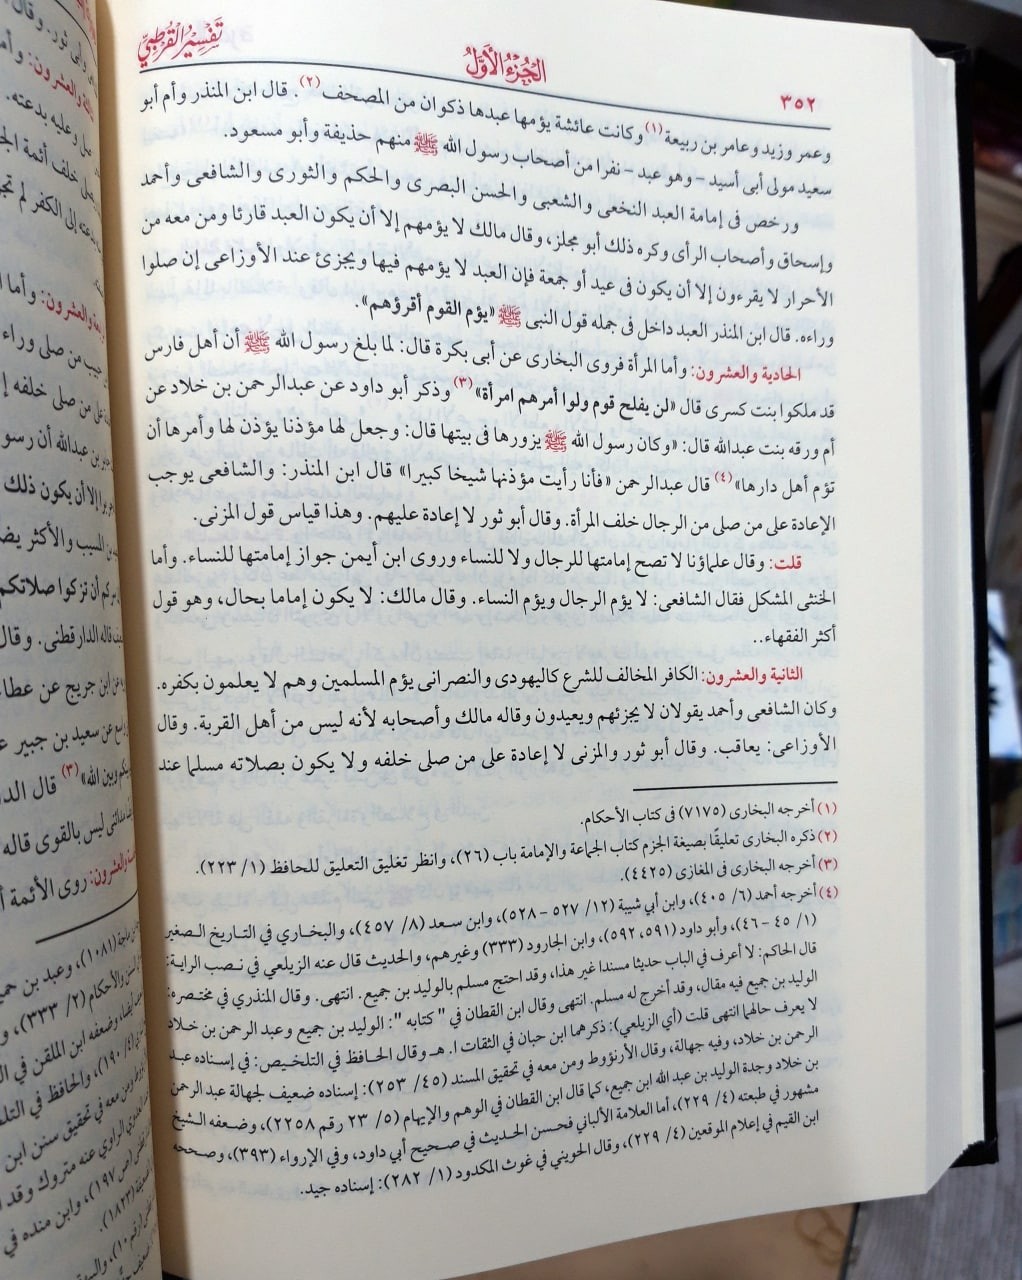 ٣٥٢
الجُزْءُ الأَوَّلُ
تَفْسِيرُ القُرْطُبِيِّ
وعمر وزيد وعامر بن ربيعة(١) وكانت عائشة يؤمها عبدها ذكوان من المصحف(٢). قال ابن المنذر وأم أبو
سعيد مولى أبى أسيد – وهو عبد – نفرا من أصحاب رسول الله ﷺ منهم حذيفة وأبو مسعود.
ورخص فى إمامة العبد النخعى والشعبى والحسن البصرى والحكم والثورى والشافعى وأحمد
وإسحاق وأصحاب الرأى وكره ذلك أبو مجلز، وقال مالك لا يؤمهم إلا أن يكون العبد قارئا ومن معه من
الأحرار لا يقرءون إلا أن يكون فى عيد أو جمعة فإن العبد لا يؤمهم فيها ويجزئ عند الأوزاعى إن صلوا
وراءه. قال ابن المنذر العبد داخل فى جمله قول النبى ﷺ «يؤم القوم أقرؤهم».
الحادية والعشرون: وأما المرأة فروى البخارى عن أبى بكرة قال: لما بلغ رسول الله ﷺ أن أهل فارس
قد ملكوا بنت كسرى قال «لن يفلح قوم ولوا أمرهم امرأة»(٣) وذكر أبو داود عن عبدالرحمن بن خلاد عن
أم ورقه بنت عبدالله قال: «وكان رسول الله ﷺ يزورها فى بيتها قال: وجعل لها مؤذنا يؤذن لها وأمرها أن
تؤم أهل دارها»(٤) قال عبدالرحمن «فأنا رأيت مؤذنها شيخا كبيرا» قال ابن المنذر: والشافعى يوجب
الإعادة على من صلى من الرجال خلف المرأة. وقال أبو ثور لا إعادة عليهم. وهذا قياس قول المزنى.
قلت: وقال علماؤنا لا تصح إمامتها للرجال ولا للنساء وروى ابن أيمن جواز إمامتها للنساء. وأما
الخنثى المشكل فقال الشافعى: لا يؤم الرجال ويؤم النساء. وقال مالك: لا يكون إماما بحال، وهو قول
أكثر الفقهاء..
الثانية والعشرون: الكافر المخالف للشرع كاليهودى والنصرانى يؤم المسلمين وهم لا يعلمون بكفره.
وكان الشافعى وأحمد يقولان لا يجزئهم ويعيدون وقاله مالك وأصحابه لأنه ليس من أهل القربة. وقال
الأوزاعى: يعاقب. وقال أبو ثور والمزنى لا إعادة على من صلى خلفه ولا يكون بصلاته مسلما عند
(١) أخرجه البخارى (٧١٧٥) فى كتاب الأحكام.
(٢) ذكره البخارى تعليقًا بصيغة الجزم كتاب الجماعة والإمامة باب (٢٦)، وانظر تغليق التعليق للحافظ (١/ ٢٢٣).
(٣) أخرجه البخارى فى المغازى (٤٤٢٥).
(٤) أخرجه أحمد (٦/ ٤٠٥)، وابن أبي شيبة (١٢/ ٥٢٧ – ٥٢٨)، وابن سعد (٨/ ٤٥٧)، والبخاري في التاريخ الصغير
(١/ ٤٥ – ٤٦)، وأبو داود (٥٩١، ٥٩٢)، وابن الجارود (٣٣٣) وغيرهم، والحديث قال عنه الزيلعي في نصب الراية:
قال الحاكم: لا أعرف في الباب حديثا مسندا غير هذا، وقد احتج مسلم بالوليد بن جميع. انتهى. وقال المنذري في مختصره:
الوليد بن جميع فيه مقال، وقد أخرج له مسلم. انتهى وقال ابن القطان في " كتابه ": الوليد بن جميع وعبد الرحمن بن خلاد
لا يعرف حالهما انتهى قلت (أي الزيلعي): ذكرهما ابن حبان في الثقات ا.هـ وقال الحافظ في التلخيص: في إسناده عبد
الرحمن بن خلاد، وفيه جهالة، وقال الأرنؤوط ومن معه في تحقيق المسند (٤٥/ ٢٥٣): إسناده ضعيف لجهالة عبد الرحمن
بن خلاد وجدة الوليد بن عبد الله ابن جميع، كما قال ابن القطان في الوهم والإيهام (٥/ ٢٣ رقم ٢٢٥٨)، وضعفه الشيخ
مشهور في طبعته (٤/ ٢٢٩)، أما العلامة الألباني فحسن الحديث في صحيح أبي داود، وفي الإرواء (٣٩٣)، وصححه
ابن القيم في إعلام الموقعين (٤/ ٢٢٩)، وقال الحويني في غوث المكدود (١/ ٢٨٢): إسناده جيد.